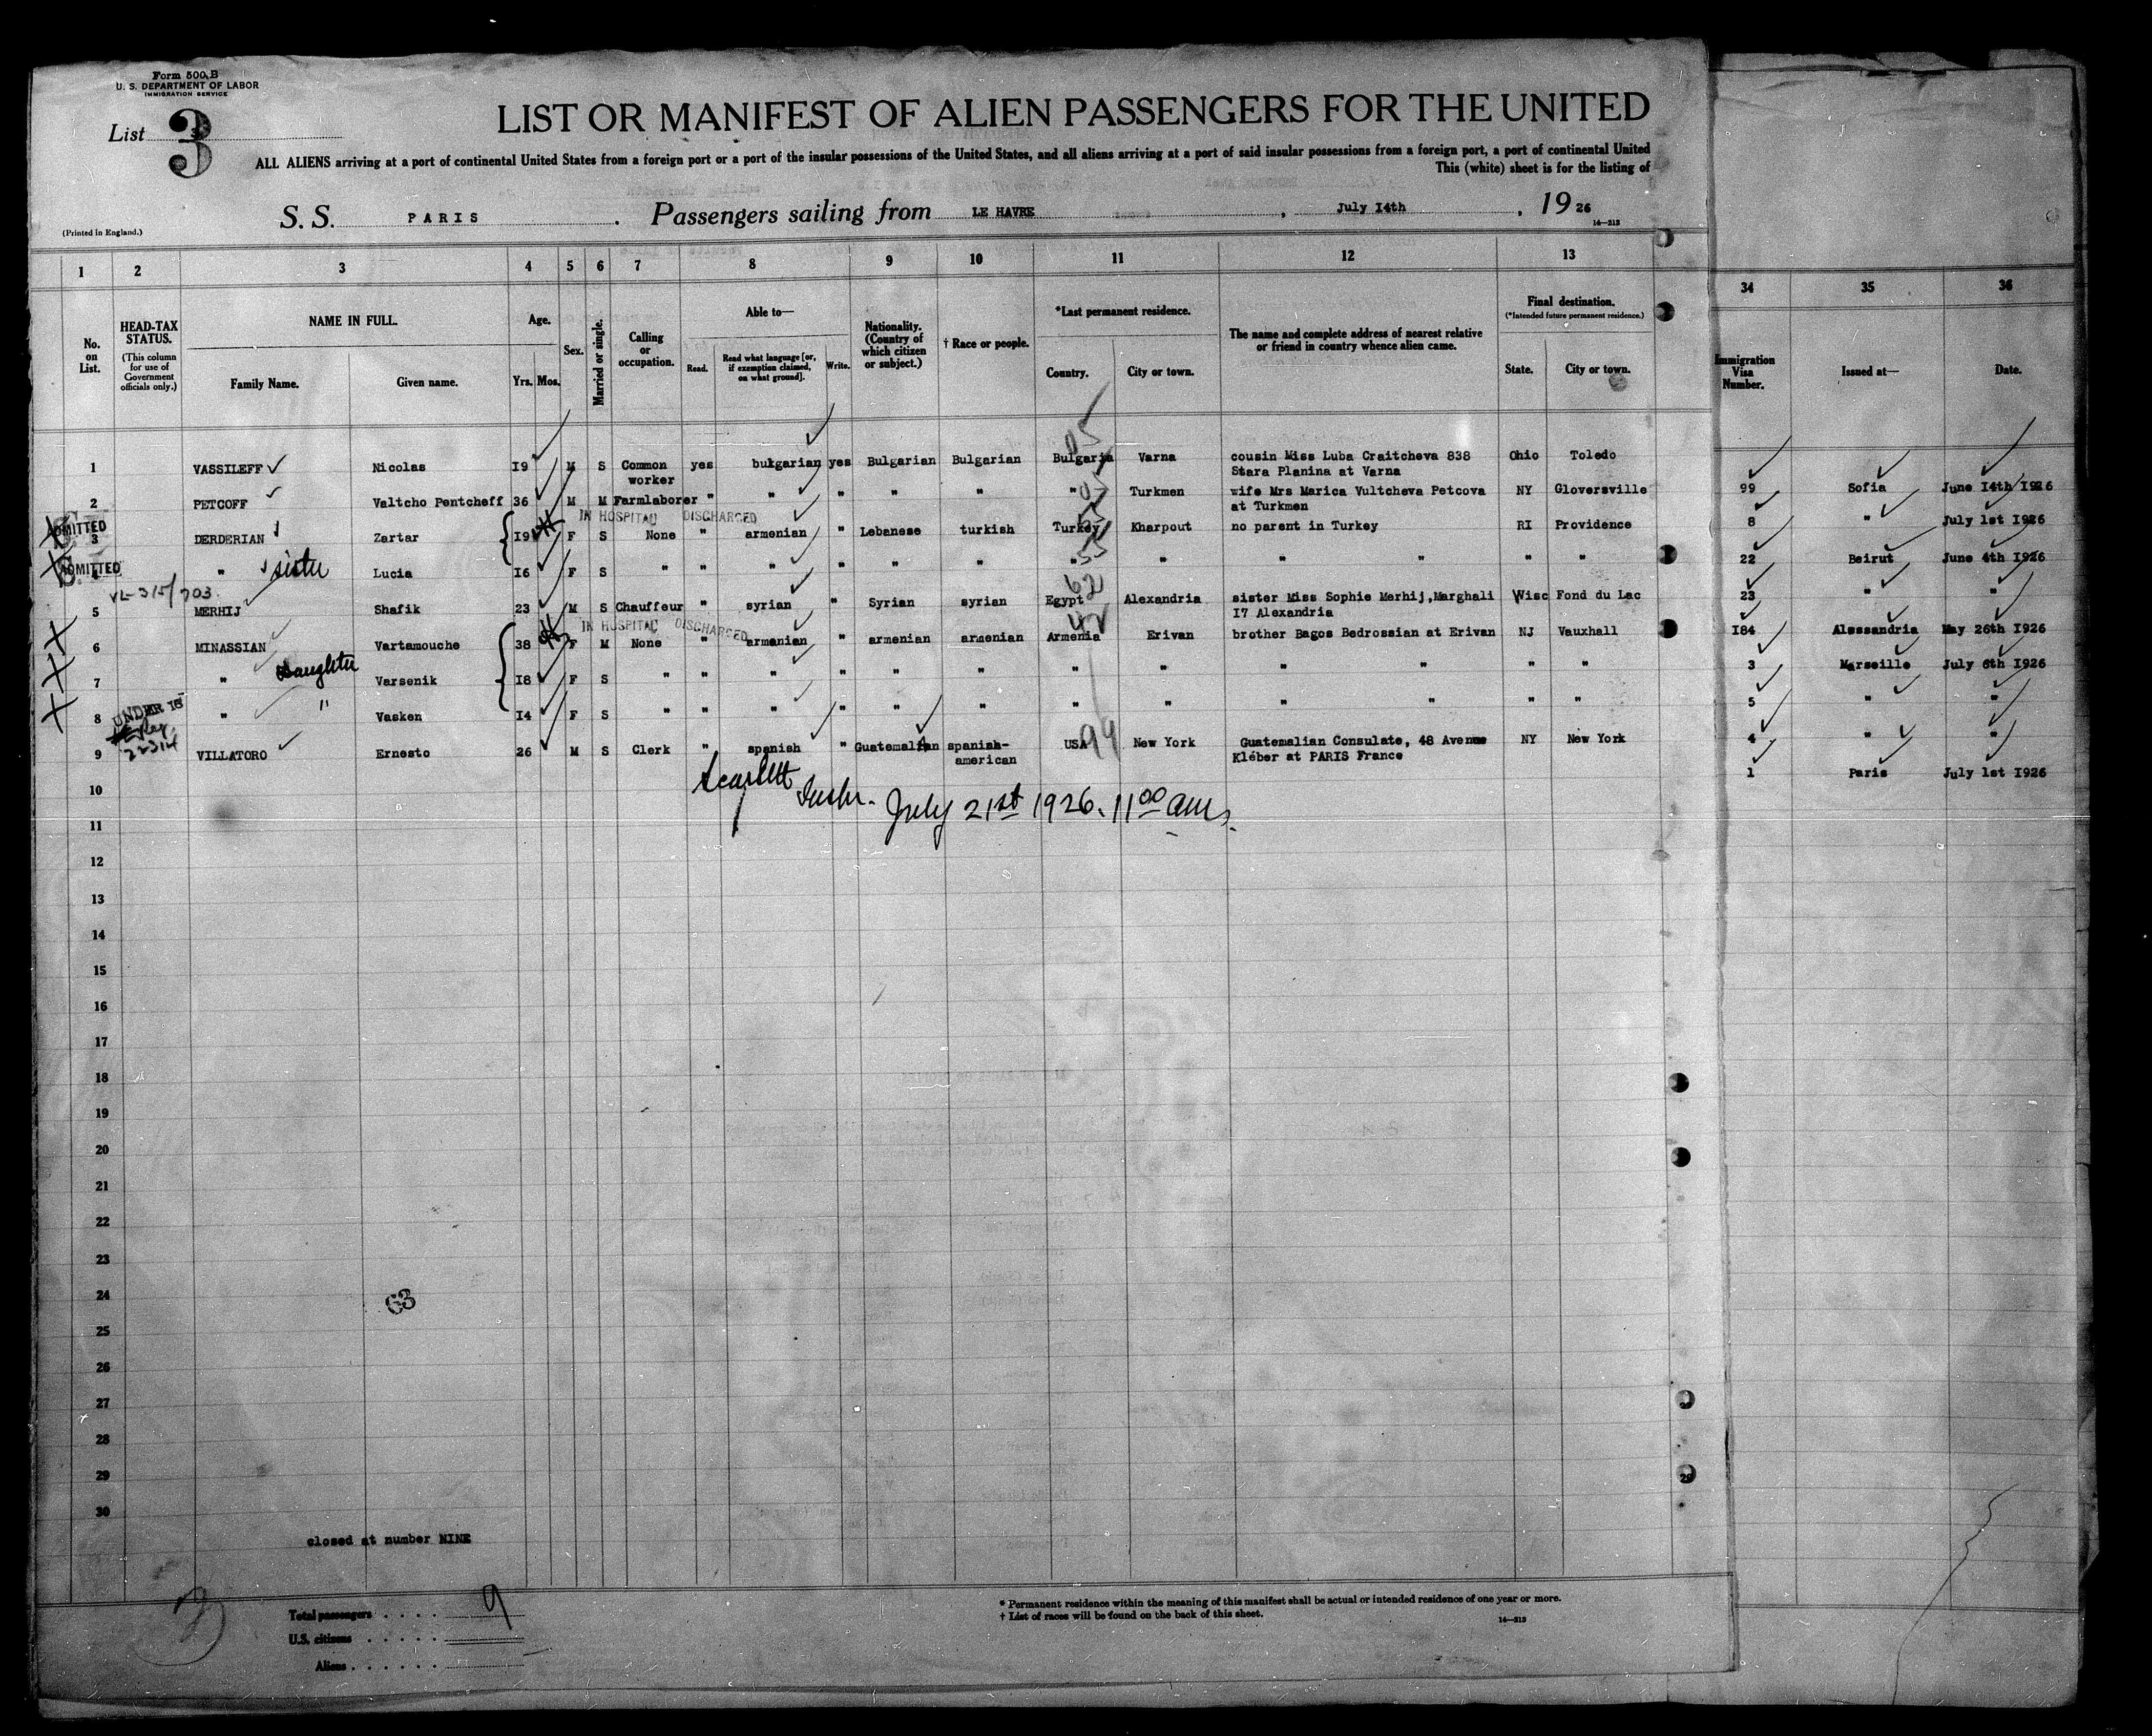 Form 500 B
U. S. DEPARTMENT OF LABOR
IMMIGRATION SERVICE
List 3
LIST OR MANIFEST OF ALIEN PASSENGERS FOR THE UNITED
ALL ALIENS arriving at a port of continental United States from a foreign port or a port of the insular possessions of the United States, and all aliens arriving at a port of said insular possessions from a foreign port, a port of continental United
This (white) sheet is for the listing of
S. S. PARIS . Passengers sailing from LE HAVRE , July I4th , 19 26
(Printed in England.)
14—313
1 2 3 4 5 6 7 8 9 10 11 12 13 34 35 36
No. on List.
HEAD-TAX STATUS.
(This column for use of Government officials only.)
NAME IN FULL.
Family Name. Given name.
Age.
Yrs. Mos.
Sex.
Married or single.
Calling or occupation.
Able to—
Read.
Read what language [or, if exemption claimed, on what ground].
Write.
Nationality. (Country of which citizen or subject.)
† Race or people.
*Last permanent residence.
Country. City or town.
The name and complete address of nearest relative or friend in country whence alien came.
Final destination.
(*Intended future permanent residence.)
State. City or town.
Immigration Visa Number.
Issued at—
Date.
1 VASSILEFF Nicolas I9 M S Common worker yes bulgarian yes Bulgarian Bulgarian Bulgaria 05 Varna cousin Miss Luba Craitcheva 838 Stara Planina at Varna Ohio Toledo 99 Sofia June I4th I926
2 PETCOFF Valtcho Pentcheff 36 M M Farmlaborer " " " " " " 05 Turkmen wife Mrs Marica Vultcheva Petcova at Turkmen NY Gloversville 8 " July 1st I926
ADMITTED IN HOSPITAL DISCHARGED
3 DERDERIAN Zartar I9 F S None " armenian " Lebanese turkish Turkey Kharpout no parent in Turkey RI Providence 22 Beirut June 4th I926
ADMITTED
4 " sister Lucia I6 F S " " " " " " " " " " " " 23 " "
5 MERHIJ Shafik 23 M S Chauffeur " syrian " Syrian syrian Egypt 62 Alexandria sister Miss Sophie Merhij, Marghali I7 Alexandria Wisc Fond du Lac I84 Alessandria May 26th I926
IN HOSPITAL DISCHARGED
6 MINASSIAN Vartamouche 38 F M None " armenian " armenian armenian Armenia Erivan brother Bagos Bedrossian at Erivan NJ Vauxhall 3 Marseille July 6th I926
7 " Daughter Varsenik I8 F S " " " " " " " " " " " " 5 " "
UNDER 16
8 " " Vasken I4 F S " " " " " " " " " " " " 4 " "
9 VILLATORO Ernesto 26 M S Clerk " spanish " Guatemalian spanish-american USA 94 New York Guatemalian Consulate, 48 Avenue Kléber at PARIS France NY New York 1 Paris July 1st I926
10
Scarlett Insptr. July 21st 1926. 11 00 am.
11
12
13
14
15
16
17
18
19
20
21
22
23
24
63
25
26
27
28
29
29
30
closed at number NINE
Total passengers . . . . 9
U.S. citizens . . . . .
Aliens . . . . . .
* Permanent residence within the meaning of this manifest shall be actual or intended residence of one year or more.
† List of races will be found on the back of this sheet.
14—313